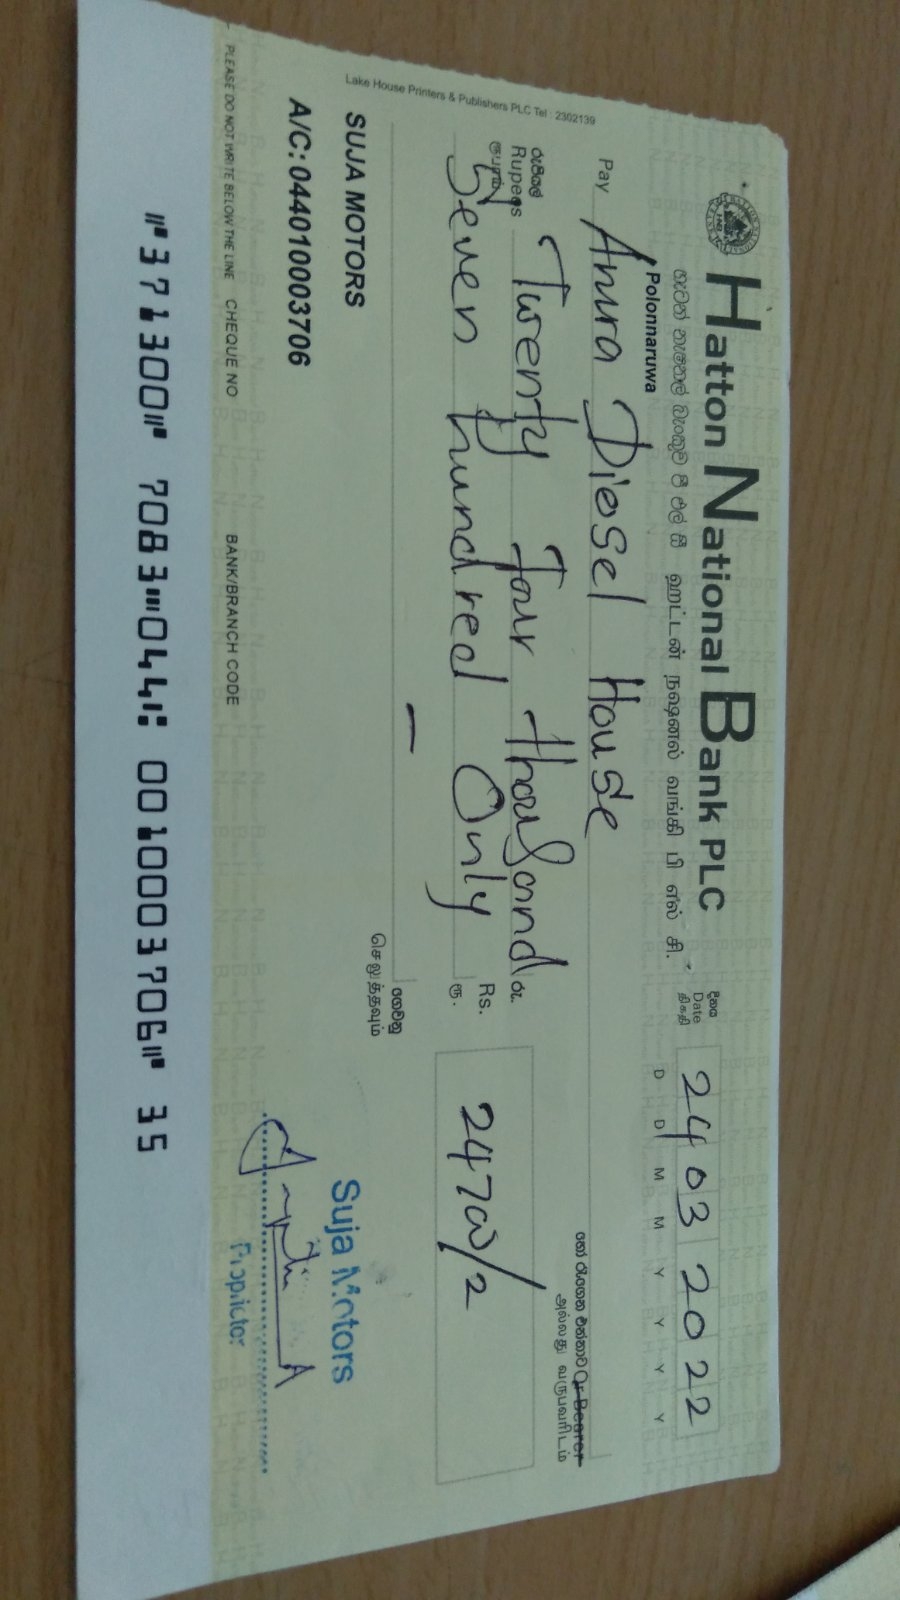 Hatton National Bank PLC
හැටන් නැෂනල් බැංකුව පී එල් සී ஹட்டன் நஷனல் வங்கி பி எல் சி.
Polonnaruwa
දිනය
Date
திகதி
24 03 2022
D D M M Y Y Y Y
Pay Anura Diesel House
හෝ රැගෙන එන්නාට Or Bearer
அல்லது வருபவரிடம்
Lake House Printers & Publishers PLC Tel : 2302139
රුපියල්
Rupees
ரூபாய்
Twenty Four thousand
Seven hundred Only
රු.
Rs.
ரூ.
2470/2
ගෙවනු
செலுத்தவும்
SUJA MOTORS
A/C: 044010003706
Suja Motors
Proprietor
PLEASE DO NOT WRITE BELOW THE LINE CHEQUE NO BANK/BRANCH CODE
⑈371300⑈ 7083⑉044⑆ 0010003706⑈ 35